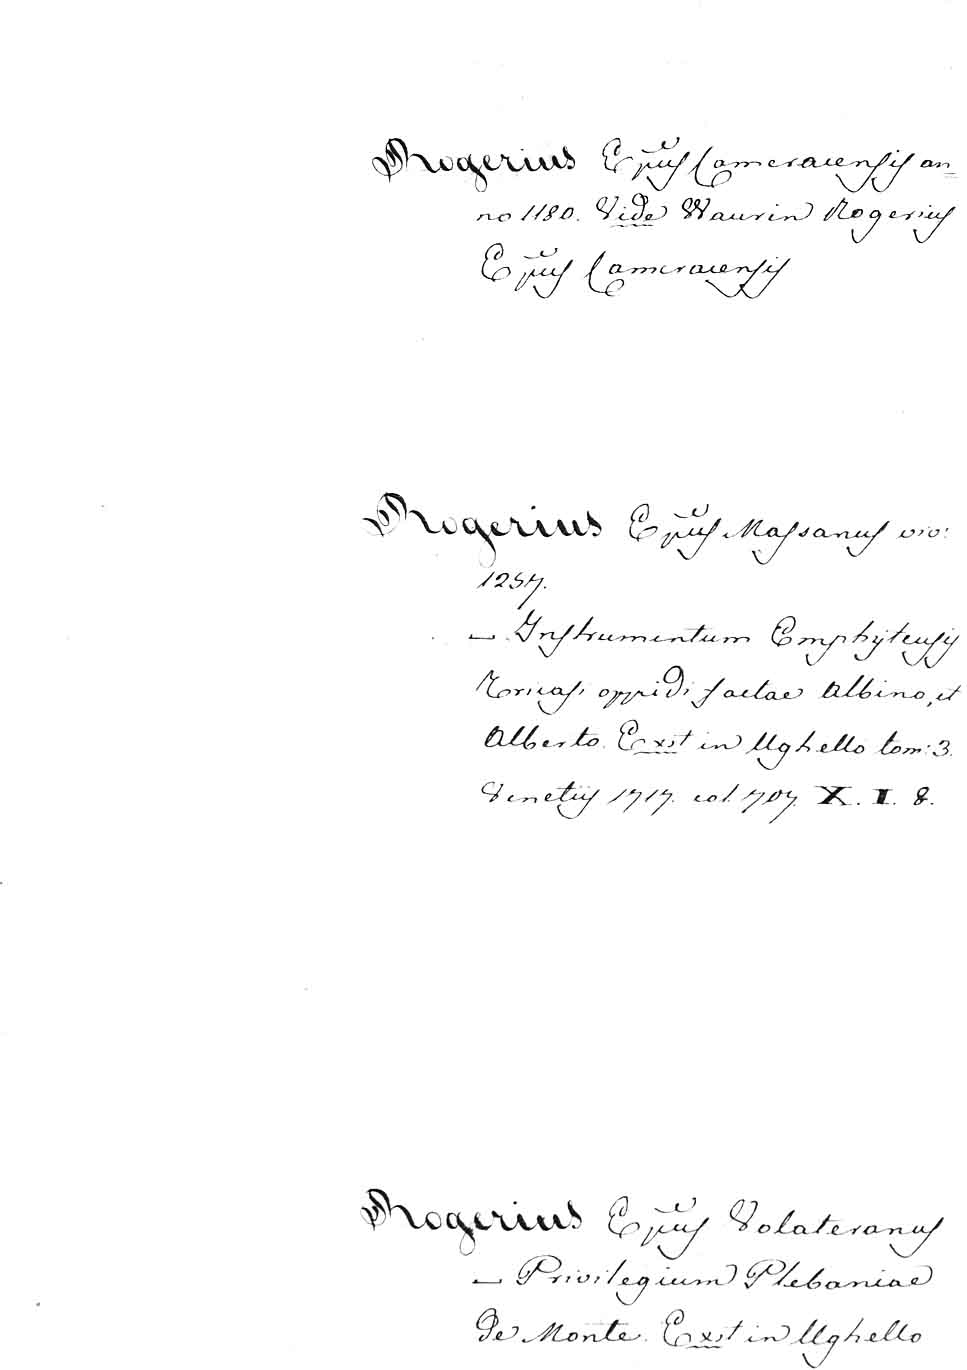 Rogerius Ep̃us Cameracensis an=
no 1180. Vide Waurin Rogerius
Ep̃us Cameracensis
Rogerius Ep̃us Massanus viv:
1257.
— Instrumentum Emphÿteusis
Tricasi oppidi factae Albino, et
Alberto. Exst in Ughello tom: 3.
Venetijs 1717. col. 707. X. I. 8.
Rogerius Ep̃us Volateranus
— Privilegium Plebaniae
de Monte. Exst in Ughello